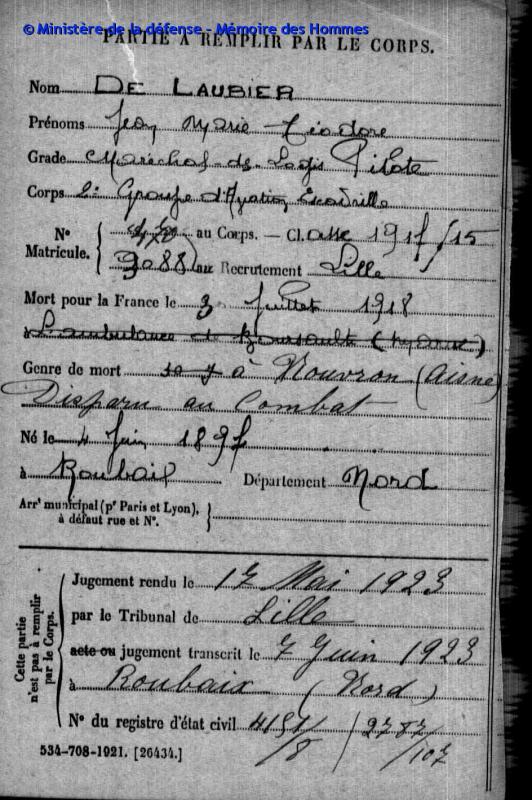 © Ministère de la défense - Mémoire des Hommes
PARTIE À REMPLIR PAR LE CORPS.
Nom DE LAUBIER
Prénoms Jean Marie Téodore
Grade Maréchal-des-Logis Pilote
Corps 2e Groupe d'Aviation Escadrille
N° Matricule. au Corps. — Cl. asse 1917/15
9088 au Recrutement Lille
Mort pour la France le 3 Juillet 1918
à L'ambulance de Boursault (Marne)
Genre de mort à Nouvron (Aisne)
Disparu au Combat
Né le 4 Juin 1897
à Roubaix Département Nord
Arrt municipal (pr Paris et Lyon),
à défaut rue et N°.
Cette partie n'est pas à remplir par le Corps.
Jugement rendu le 17 Mai 1923
par le Tribunal de Lille
acte ou jugement transcrit le 7 Juin 1923
à Roubaix (Nord)
N° du registre d'état civil 
534-708-1921. [26434.]